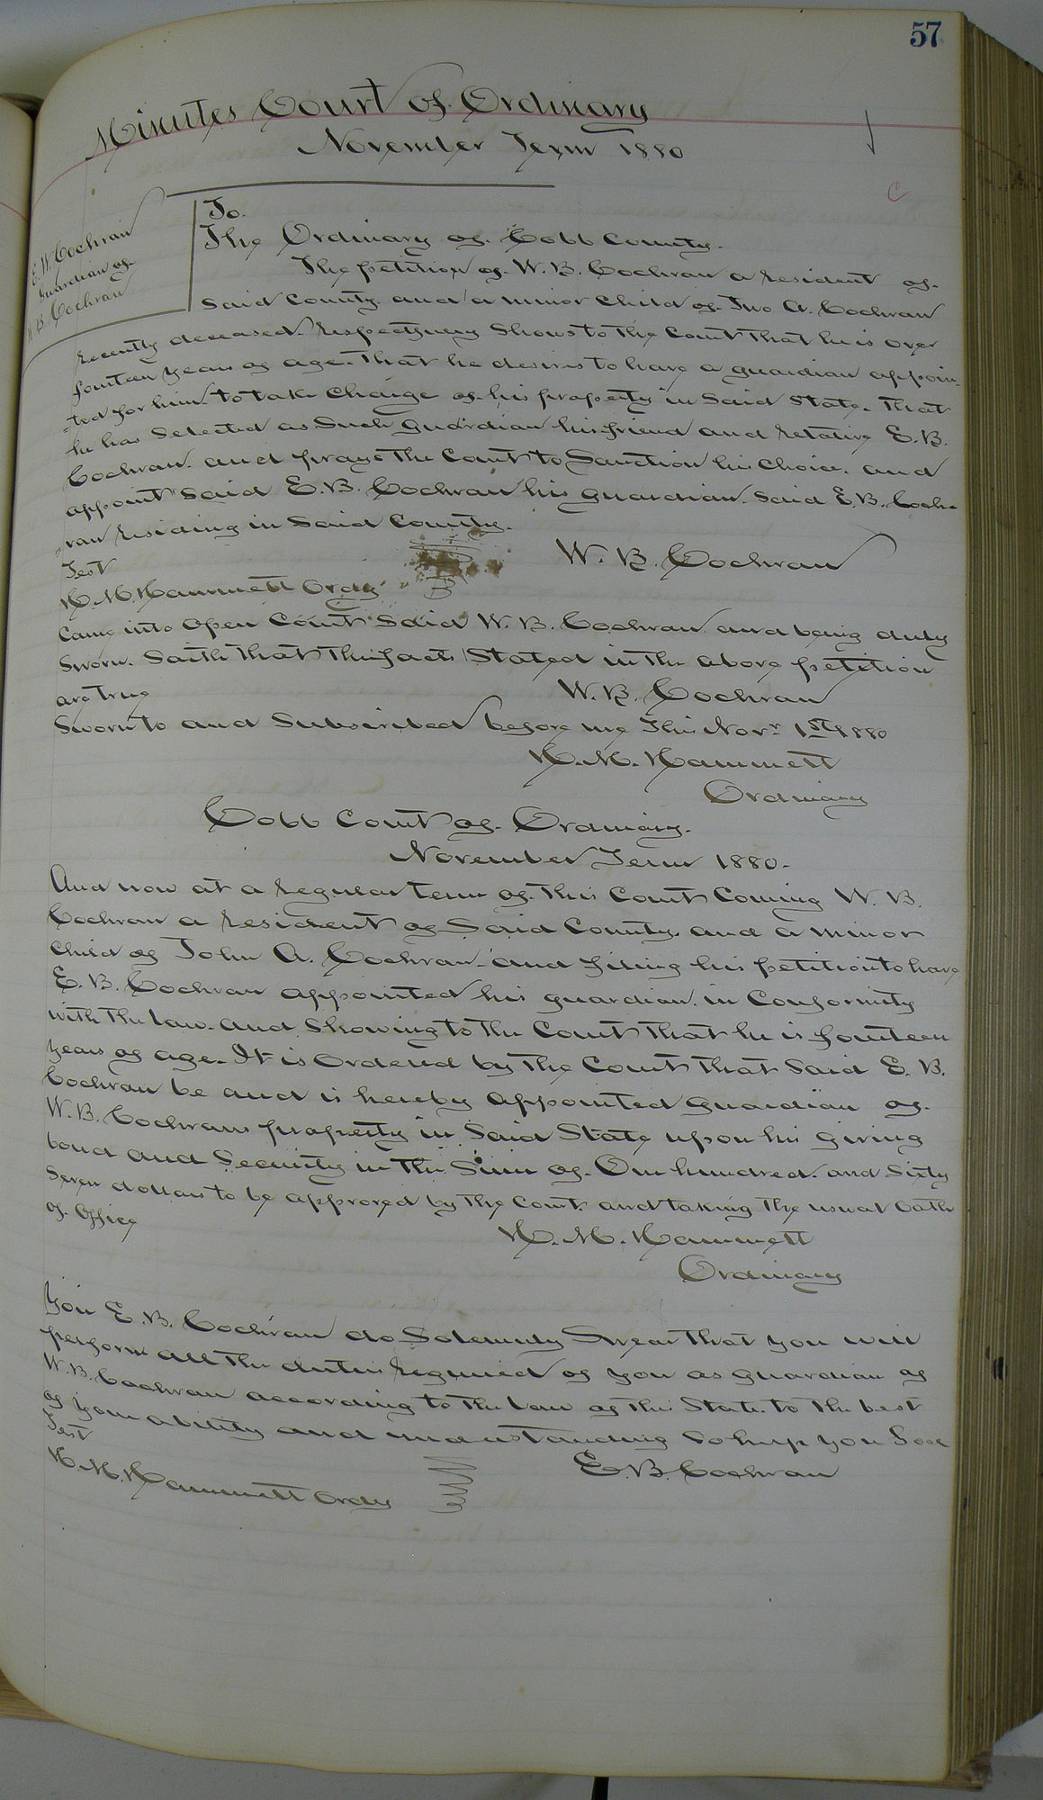 57
Minutes Court of Ordinary
November Term 1880
E. W. Cochran
Guardian of
W. B. Cochran
To.
The Ordinary of Cobb County.
The petition of W. B. Cochran a resident of
Said County and a minor child of Jno A. Cochran
recently deceased. Respectfully Shows to the Court that he is over
fourteen years of age. That he desires to have a guardian appoin
ted for him to take Charge of his property in Said State. That
he has Selected as Such Guardian his friend and relative E. B.
Cochran. and prays the Court to Sanction his choice. and
appoint Said E. B. Cochran his guardian. Said E. B. Coch-
ran residing in Said County.
W. B. Cochran
Test
H. M. Hammett Ordy
Came into Open Court Said W. B. Cochran and being duly
Sworn. Saith that the facts Stated in the above petition
are true
W. B. Cochran
Sworn to and Subscribed before me This Novr 1st 1880
H. M. Hammett
Ordinary
Cobb Court of Ordinary.
November Term 1880.
And now at a regular term of this Court Coming W. B.
Cochran a resident of Said County. and a minor
child of John A. Cochran. and filing his petition to have
E. B. Cochran appointed his guardian. in Conformity
with the law. and Showing to the Court that he is fourteen
years of age. It is Ordered by the Court that Said E. B.
Cochran be and is hereby appointed guardian of
W. B. Cochrans property in Said State upon his giving
bond and Security in the Sum of One hundred and Sixty
Seven dollars to be approved by the Court and taking the usual Oath
of Office
H. M. Hammett
Ordinary
You E. B. Cochran do Solemnly Swear that you will
perform all the duties required of you as guardian of
W. B. Cochran according to the law of this State. to the best
of your ability and understanding So help you God
Test
E. B. Cochran
H. M. Hammett Ordy